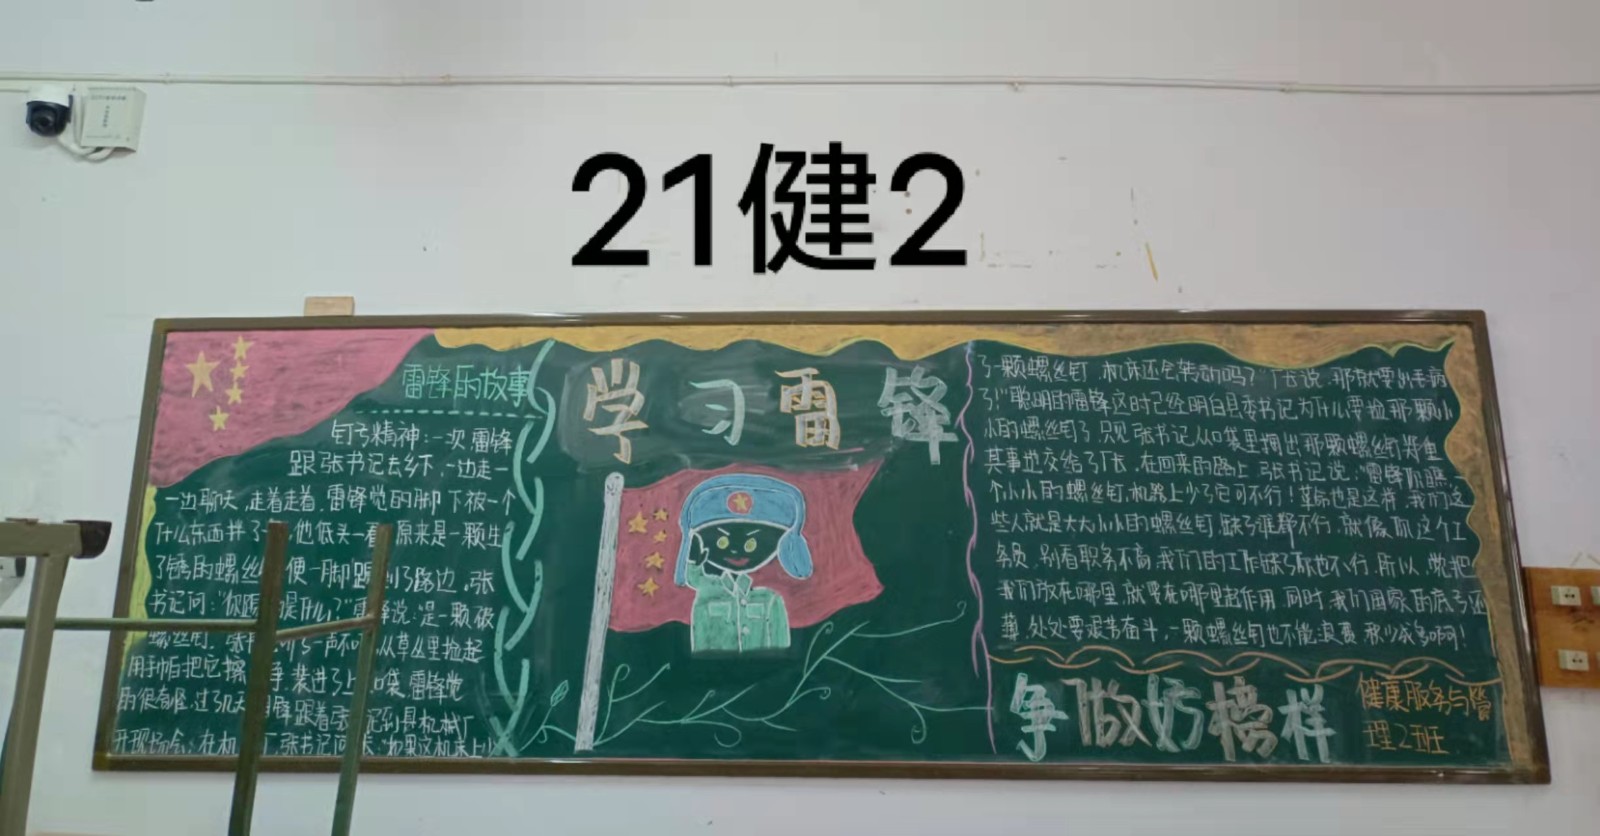 21健2
雷锋的故事
钉子精神:一次,雷锋
跟张书记去乡下,一边走一
一边聊天,走着走着,雷锋觉的脚下被一个
什么东西拌了 他低头一看 原来是一颗生
了锈的螺丝 便一脚踢到了路边,张
书记问:“你踢 是什么?”雷锋说:是一颗破
螺丝钉。张 了一声不 从草丛里捡起
用手帕把它擦 净,装进了上 口袋,雷锋觉
的很奇怪,过了几天 锋跟着张 记到县机械厂
开现场会:在机 厂,张书记问 长:“如果这机床上少
学习雷锋
了一颗螺丝钉,机床还会转动吗?”厂长说,那就要出毛病
了!”聪明的雷锋这时已经明白县委书记为什么要捡那颗小
小的螺丝钉了,只见张书记从口袋里掏出那颗螺丝钉郑重
其事地交给了厂长,在回来的路上,张书记说:“雷锋
个小小的螺丝钉,机器上少了它可不行!革命也是这样,我们这
些人就是大大小小的螺丝钉,缺了谁都不行,就像 这个工
务员,别看职务不高,我们的工作缺了你也不行,所以,党把
我们放在哪里,就要在哪里起作用,同时,我们国家的底子还
薄,处处要艰苦奋斗,一颗螺丝钉也不能浪费,积少成多啊!
争做好榜样
健康服务与管
理2班